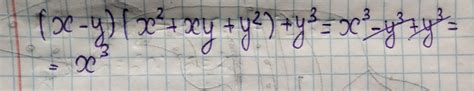 (x-y)(x²+xy+y²)+y³=x³-y³+y³=
=x³